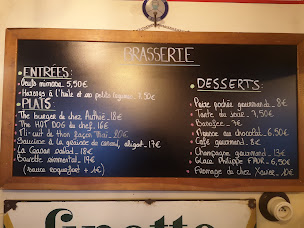 BRASSERIE
ENTRÉES:
Oeufs mimosa_ 5,50€
Harengs à l'huile et ses petits légumes_ 7,50€
PLATS:
The burger de chez Ruthie_ 18€
The HOT DOG du chef_ 16€
Mi-cuit de thon façon Maï_ 20€
Saucisse à la graisse de canard, aligot_ 17€
La Caesar salad_ 18€
Bavette simmental_ 19€
(sauce roquefort + 1€)
DESSERTS:
Poire pochée gourmande_ 8€
Tarte du jour_ 7,50€
Banoffee_ 7€
Mousse au chocolat_ 6,50€
Café gourmand_ 8€
Champagne gourmand_ 13€
Glace Philippe FAUR_ 6,50€
Fromage de chez Xavier_ 10€